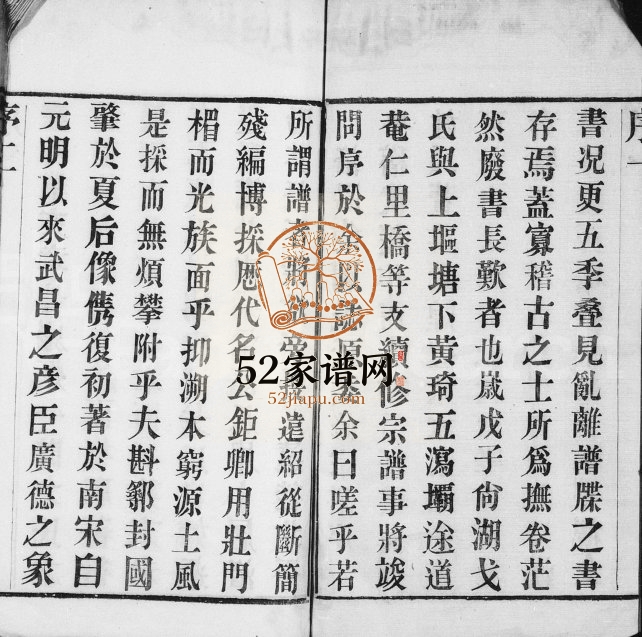 序一
書况更五季叠見亂離譜牒之書
存焉蓋寡稽古之士所爲撫卷茫
然廢書長歎者也嵗戊子尙湖戈
氏與上塸塘下黃琦五瀉壩途道
菴仁里橋等支續修宗譜事將竣
問序於余 余曰嗟乎若
所謂譜者將 遠紹從斷簡
殘編博採歷代名公鉅卿用壯門
楣而光族面乎抑溯本窮源土風
是採而無煩攀附乎夫斟鄩封國
肇於夏后像儁復初著於南宋自
元明以來武昌之彦臣廣德之象
序二
52家谱网
52jiapu.com